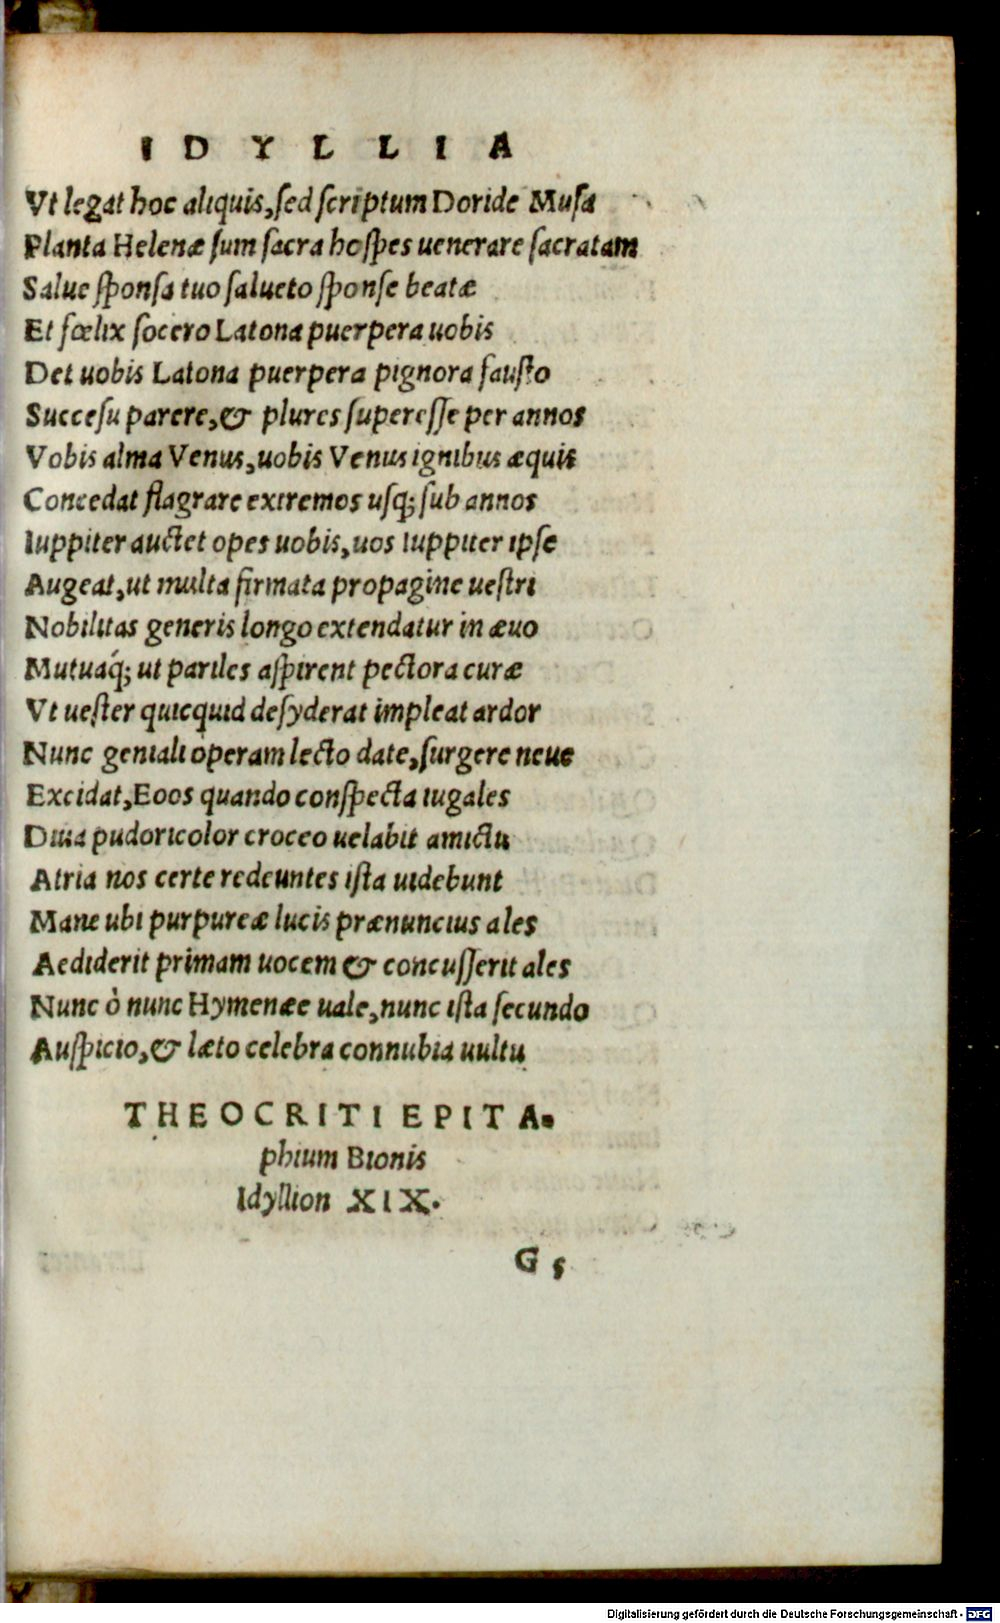 IDYLLIA
Vt legat hoc aliquis, sed scriptum Doride Musa
Planta Helenæ sum sacra hospes uenerare sacratam
Salue sponsa tuo salueto sponse beatæ
Et fœlix socero Latona puerpera uobis
Det uobis Latona puerpera pignora fausto
Succesu parere, & plures superesse per annos
Vobis alma Venus, uobis Venus ignibus æquis
Concedat flagrare extremos usq; sub annos
Iuppiter auctet opes uobis, uos Iuppiter ipse
Augeat, ut multa firmata propagine uestri
Nobilitas generis longo extendatur in æuo
Mutuaq́; ut pariles aspirent pectora curæ
Vt uester quicquid desyderat impleat ardor
Nunc geniali operam lecto date, surgere neue
Excidat, Eoos quando conspecta iugales
Diua pudoricolor croceo uelabit amictu
Atria nos certe redeuntes ista uidebunt
Mane ubi purpureæ lucis prænuncius ales
Aediderit primam uocem & concusserit ales
Nunc ò nunc Hymenæe uale, nunc ista secundo
Auspicio, & læto celebra connubia uultu
THEOCRITI EPITA-
phium Bionis
Idyllion XIX.
G 5
Digitalisierung gefördert durch die Deutsche Forschungsgemeinschaft - DFG